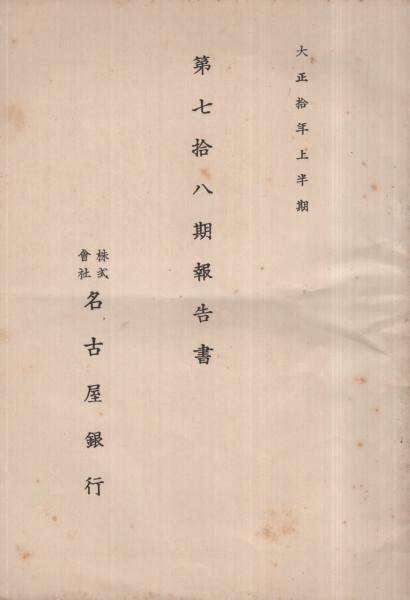 大正拾年上半期
第七拾八期報告書
株式會社名古屋銀行